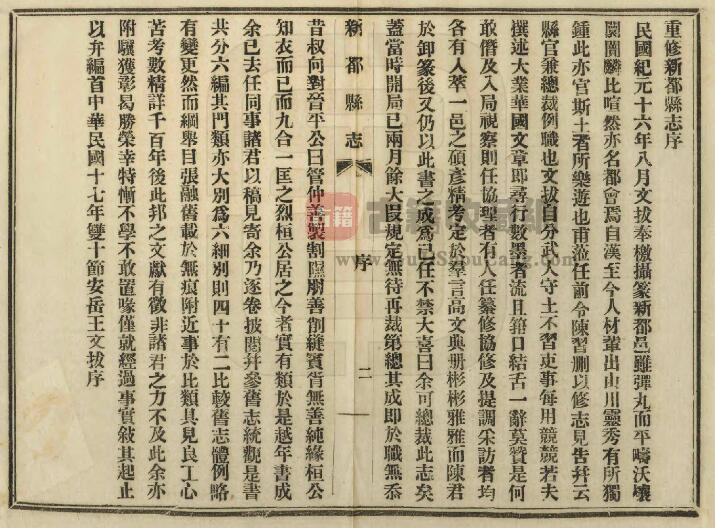 重修新都縣志序
民國紀元十六年八月文拔奉檄攝篆新都邑雖彈丸而平疇沃壤
闤闠麟比喧然亦名都會焉自漢至今人材輩出山川靈秀有所獨
鍾此亦官斯土者所樂遊也甫涖任前令陳習刪以修志見告幷云
縣官兼總裁例職也文拔自分武人守土不習吏事每用兢兢若夫
撰述大業華國文章即尋行數墨者流且箝口結舌一辭莫贊是何
敢僭及入局視察則任協理者有人任纂修協修及提調采訪者均
各有人萃一邑之碩彥精考定於羣言高文典册彬彬雅雅而陳君
於卸篆後又仍以此書之成爲己任不禁大喜曰余可總裁此志矣
蓋當時開局已兩月餘大段規定無待再裁第總其成即於職無忝
新都縣志
序
二
昔叔向對晉平公曰管仲善製割隰朋善削縫賓胥無善純緣桓公
知衣而已而九合一匡之烈桓公居之今者實有類於是越年書成
余已去任同事諸君以稿見寄余乃逐卷披閱幷參舊志統觀是書
共分六編其門類亦大別爲六細別則四十有二比較舊志體例略
有變更然而綱舉目張融舊載於無痕附近事於比類具見良工心
苦考數精詳千百年後此邦之文獻有徵非諸君之力不及此余亦
附驥獲彰曷勝榮幸特慚不學不敢置喙僅就經過事實敍其起止
以弁編首中華民國十七年雙十節安岳王文拔序
古籍
www.